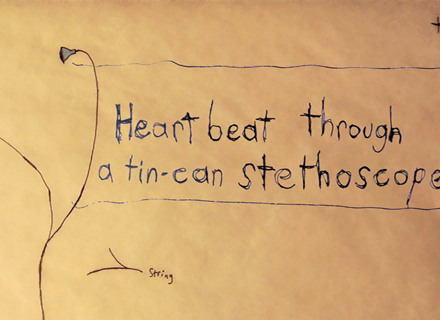 Heart beat through
a tin-can stethoscope
String